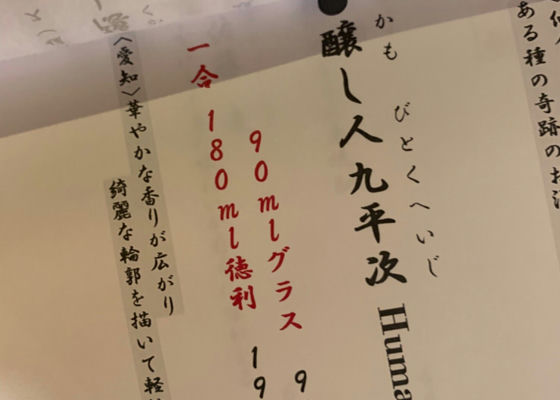 ある種の奇跡のお
かも びとくへいじ
醸し人九平次 Huma
90mlグラス 9
一合 180ml徳利 19
〈愛知〉華やかな香りが広がり
綺麗な輪郭を描いて軽